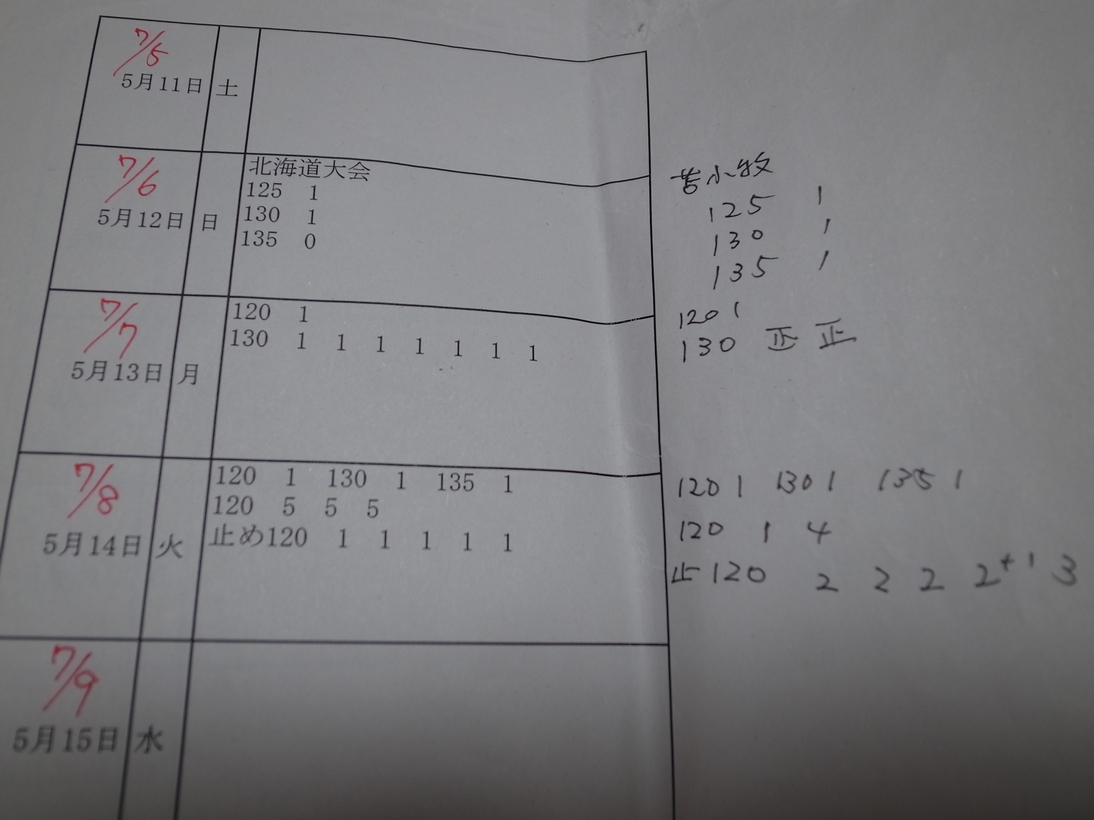 7/5
5月11日 土
7/6
5月12日 日
北海道大会
125 1
130 1
135 0
苫小牧
125 1
130 1
135 1
7/7
5月13日 月
120 1
130 1 1 1 1 1 1 1
120 1
130 正 正
7/8
5月14日 火
120 1 130 1 135 1
120 5 5 5
止め120 1 1 1 1 1
120 1 130 1 135 1
120 1 4
止120 2 2 2 2+1 3
7/9
5月15日 水